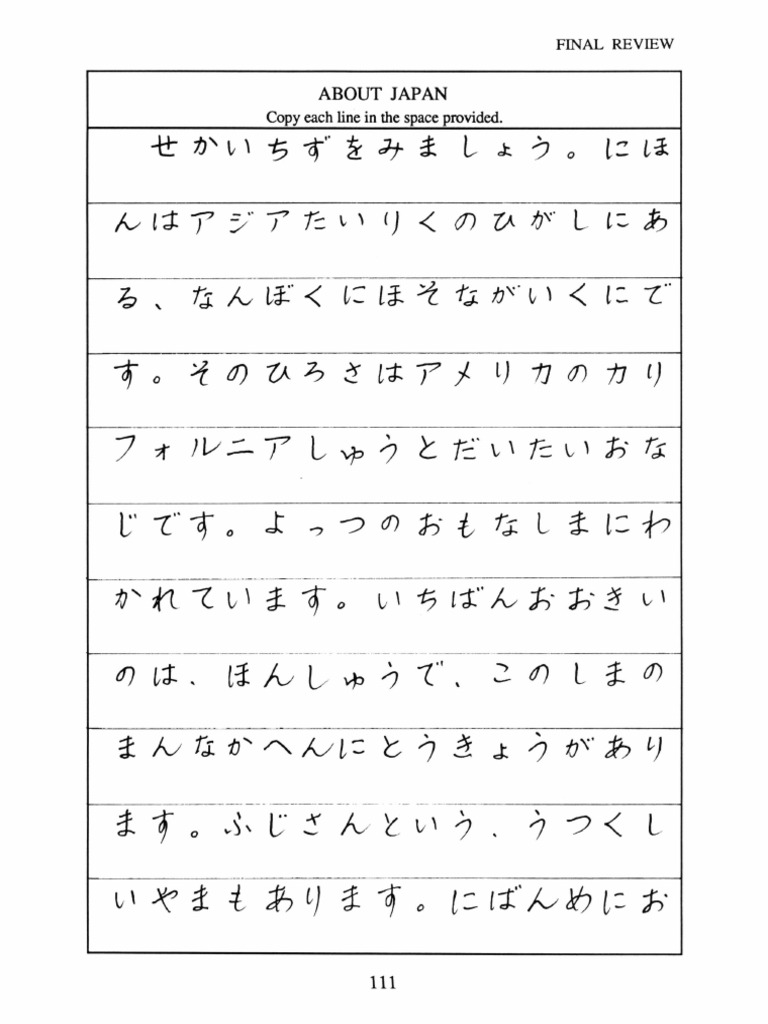 FINAL REVIEW
ABOUT JAPAN
Copy each line in the space provided.
せかいちずをみましょう。にほ
んはアジアたいりくのひがしにあ
る、なんぼくにほそながいくにで
す。そのひろさはアメリカのカリ
フォルニアしゅうとだいたいおな
じです。よっつのおもなしまにわ
かれています。いちばんおおきい
のは、ほんしゅうで、このしまの
まんなかへんにとうきょうがあり
ます。ふじさんという、うつくし
いやまもあります。にばんめにお
111